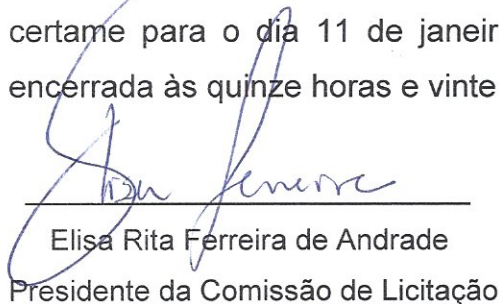 certame para o dia 11 de janeir
encerrada às quinze horas e vinte
Elisa Ferreira
Elisa Rita Ferreira de Andrade
Presidente da Comissão de Licitação